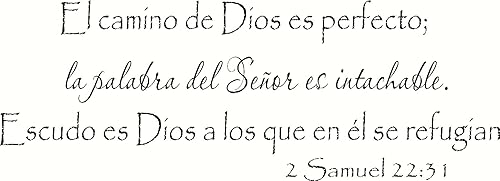 El camino de Dios es perfecto;
la palabra del Señor es intachable.
Escudo es Dios a los que en él se refugian
2 Samuel 22:31